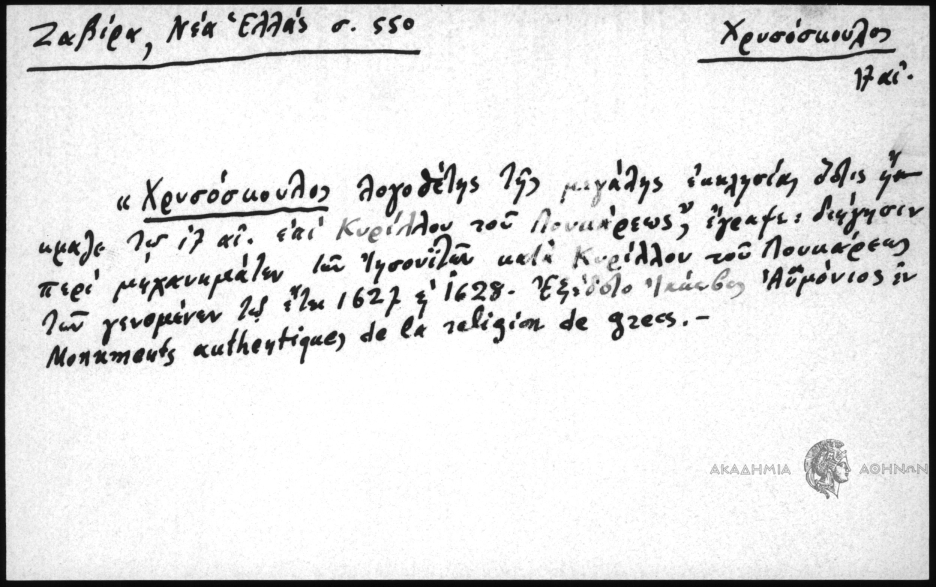 Ζαβίρα, Νέα Ἑλλάς σ. 550
Χρυσόσκουλος
17 αἰ.
"Χρυσόσκουλος λογοθέτης τῆς μεγάλης ἐκκλησίας ὅστις ἤκ-
μαζε τῷ 17 αἰ. ἐπί Κυρίλλου τοῦ Λουκάρεως, ἔγραψε: διήγησιν
περί μηχανημάτων τῶν Ἰησουϊτῶν κατά Κυρίλλου τοῦ Λουκάρεως
τῶν γενομένων τῷ ἔτει 1627 ἤ 1628. Ἐξέδοτο Ἰάκωβος Ἀϋμόνιος ἐν
Monuments authentiques de la religion de grecs. –
ΑΚΑΔΗΜΙΑ ΑΘΗΝΩΝ